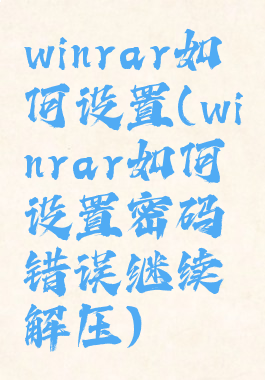 winrar如
何设置(wi
nrar如何
设置密码
错误继续
解压)